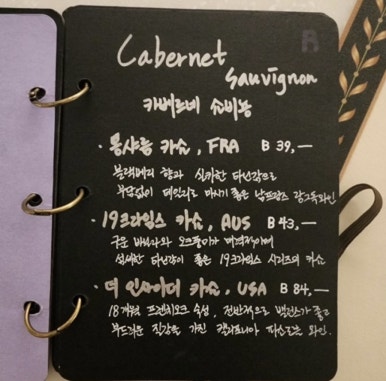 Cabernet
Sauvignon
카베르네 소비뇽
· 몽샤름 카쇼, FRA B 39,—
블랙베리 향과 시카한 타닌감으로
부담없이 데일리로 마시기 좋은 남프랑스 랑그독와인
· 19크라임스 카쇼, AUS B 43,—
구운 바닐라와 오크풍미가 매력적이며
섬세한 타닌감이 좋은 19크라임스 시리즈의 카쇼
· 더 인사이더 카쇼, USA B 84,—
18개월 프렌치오크 숙성, 전반적으로 밸런스가 좋고
부드러운 질감을 가진 캘리포니아 파소로블 와인.